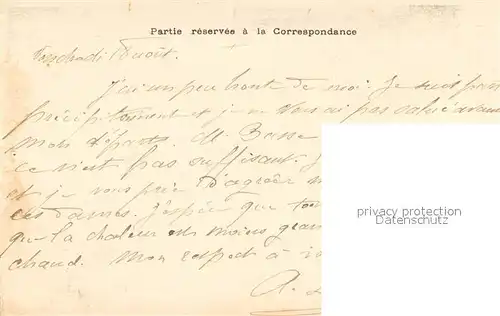 Partie réservée à la Correspondance
J'ai un peu honte de moi. Je suis
précipitamment et je ne vous ai pas salué avant
mon départ. M. Basse
ce n'est pas suffisant. J
et je vous prie d'agréer m
ces dames. J'espère que
que la chaleur est moins gran
chaud. Mon respect à
A.
privacy protection
Persönlichkeitsschutz